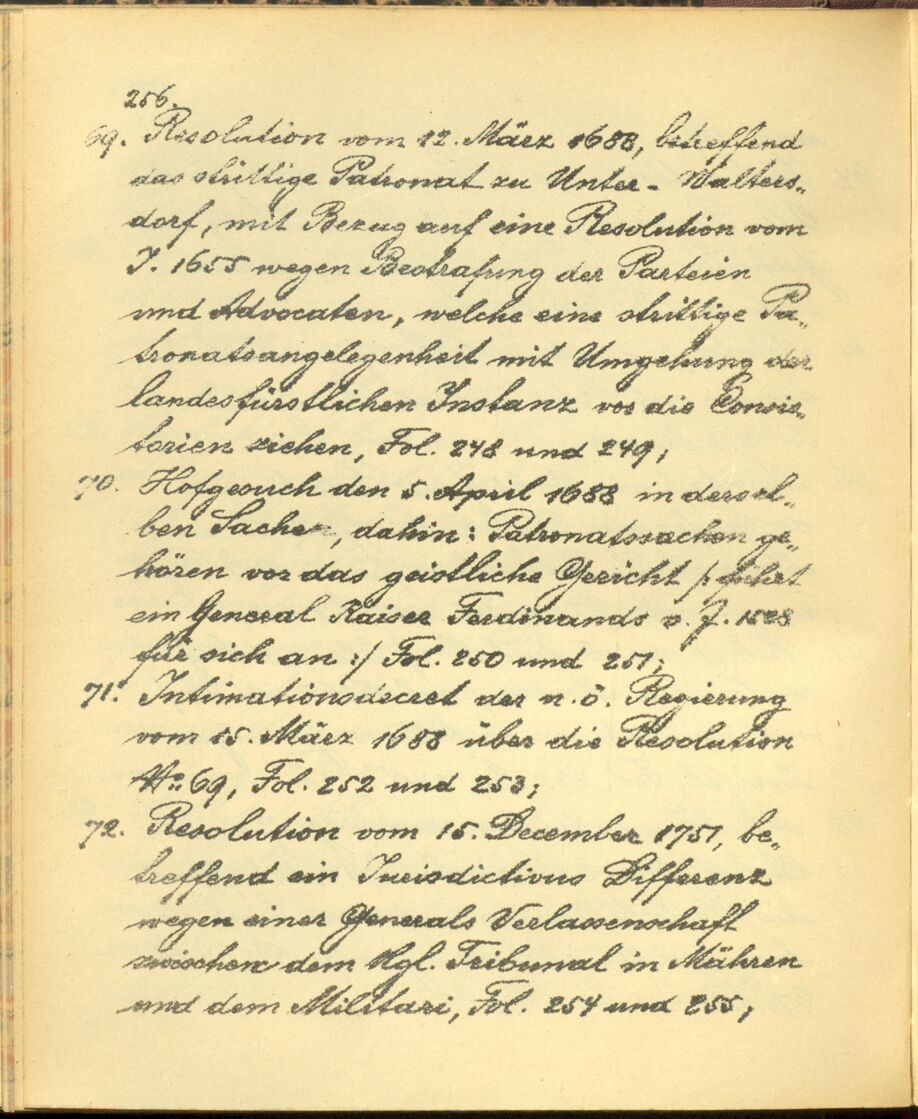 256.
69. Resolution vom 12. März 1688, betreffend
das strittige Patronat zu Unter-Walters„
dorf, mit Bezug auf eine Resolution vom
J. 1655 wegen Bestrafung der Parteien
und Advocaten, welche eine strittige Pa„
tronatsangelegenheit mit Umgehung der
landesfürstlichen Instanz vor die Consis„
torien ziehen, Fol. 248 und 249;
70. Hofgesuch den 5. April 1688 in dersel„
ben Sache, dahin: Patronatssachen ge„
hören vor das geistliche Gericht /: führt
ein General Kaiser Ferdinands v. J.
für sich an :/ Fol. 250 und 251;
71. Intimationsdecret der n. ö. Regierung
vom 15. März 1688 über die Resolution
No: 69, Fol. 252 und 253;
72. Resolution vom 15. December 1751, be„
treffend ein Jurisdictions Differenz
wegen einer Generals Verlassenschaft
zwischen dem Kgl. Tribunal in Mähren
und dem Militari, Fol. 254 und 255;